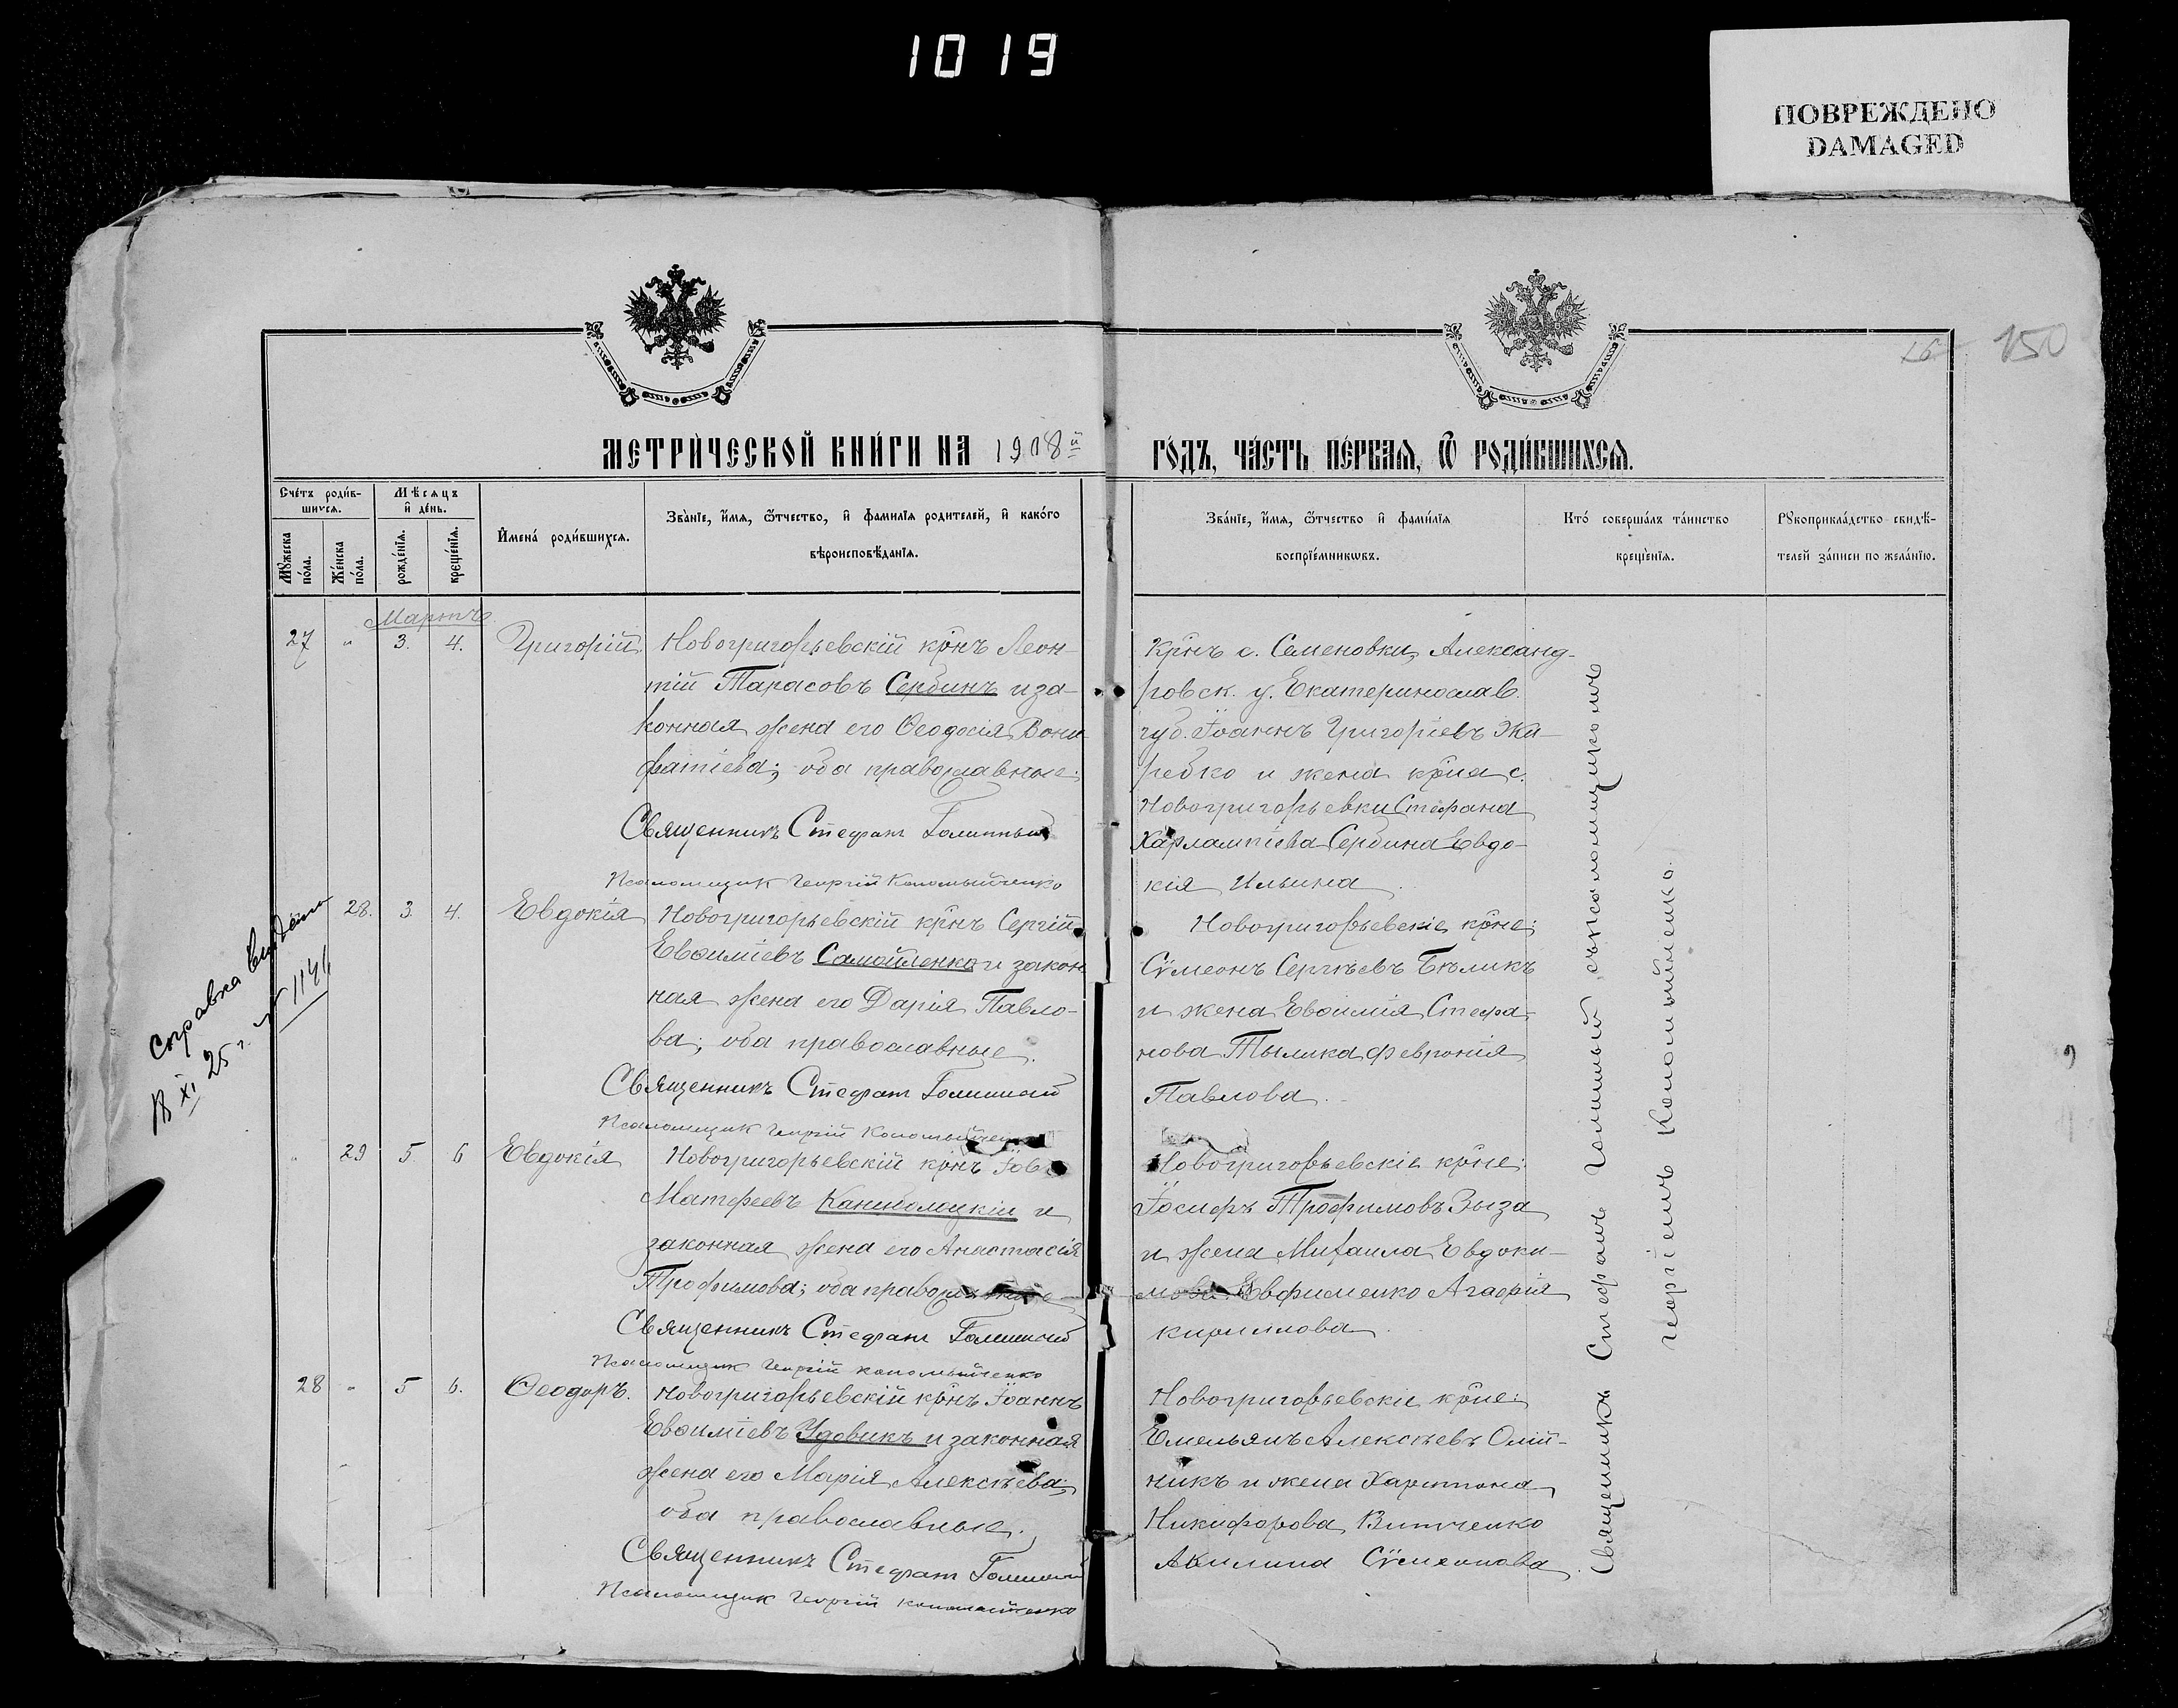 1019
ПОВРЕЖДЕНО
DAMAGED
150
МЕТРИ́ЧЕСКОЙ КНИ́ГИ НА 1908й
ГО́ДЪ, ЧА́СТЬ ПЕ́РВАЯ, Ѿ РОДИ́ВШИХСЯ.
Сче́тъ роди́в-
шихся.
Мѣсяцъ
и де́нь.
Мꙋжеска
по́ла.
Же́нска
по́ла.
рожде́нїя.
креще́нїя.
Имена́ роди́вшихся.
Зва́нїе, и́мя, ѻ́тчество, и фами́лїя родителей, и како́го
вѣроисповѣ́данїя.
Зва́нїе, и́мя, ѻ́тчество и фами́лїя
воспрїе́мникѡвъ.
Кто́ соверша́лъ та́инство
креще́нїя.
Рꙋкоприкла́дство свидѣ́-
телей за́писи по жела́нїю.
Мартъ
27 " 3. 4. Григорій. Новогригорьевскій крнъ Леон-
тій Тарасовъ Сербинъ и за-
конная жена его Ѳеодосія Вони-
фатіева; оба православные.
Священникъ Стефанъ
Псаломщик Георгій Коломыйченко
Крнъ с. Семеновки, Александ-
ровск. у. Екатеринослав.
губ. Іоаннъ Григоріевъ Жа-
ребко и жена крна с.
Новогригорьевки Стефана
Харлампіева Сербина Евдо-
кія Ильина.
28. 3. 4. Евдокія Новогригорьевскій крнъ Сергій
Евѳиміевъ Самойленко и закон
ная жена его Дарія Павло-
ва; оба православные.
Священникъ Стефанъ
Псаломщик Георгій Коломыйченко
Новогригорьевскіе крне:
Сѵмеонъ Сергѣевъ Бѣликъ
и жена Евѳимія Стефа-
нова Тылика Феврония
Павлова.
Справка выдана
18 XI 25 г. № 1141
" 29 5 6 Евдокія Новогригорьевскій крнъ Іовъ
Матфеевъ Каниболоцкій и
законная жена его Анастасія
Трофимова; оба православные
Священникъ Стефанъ
Псаломщик Георгій Коломыйченко
Новогригорьевскіе крне:
Іосифъ Трофимовъ Зыза
и жена Михаила Евдоки-
мова Ефименко Агафія
Кириллова.
28 " 5 6. Ѳеодоръ. Новогригорьевскій крнъ Іоаннъ
Евѳиміевъ Удовикъ и законная
жена его Марія Алексѣева;
оба православные.
Священникъ Стефанъ
Псаломщик Георгій Коломыйченко
Новогригорьевскіе крне:
Емельянъ Алексѣевъ Олій-
никъ и жена Харитона
Никифорова Витченко
Акилина Сѵмеонова.
Священникъ Стефанъ съ псаломщикомъ
Георгіемъ Коломыйченко.